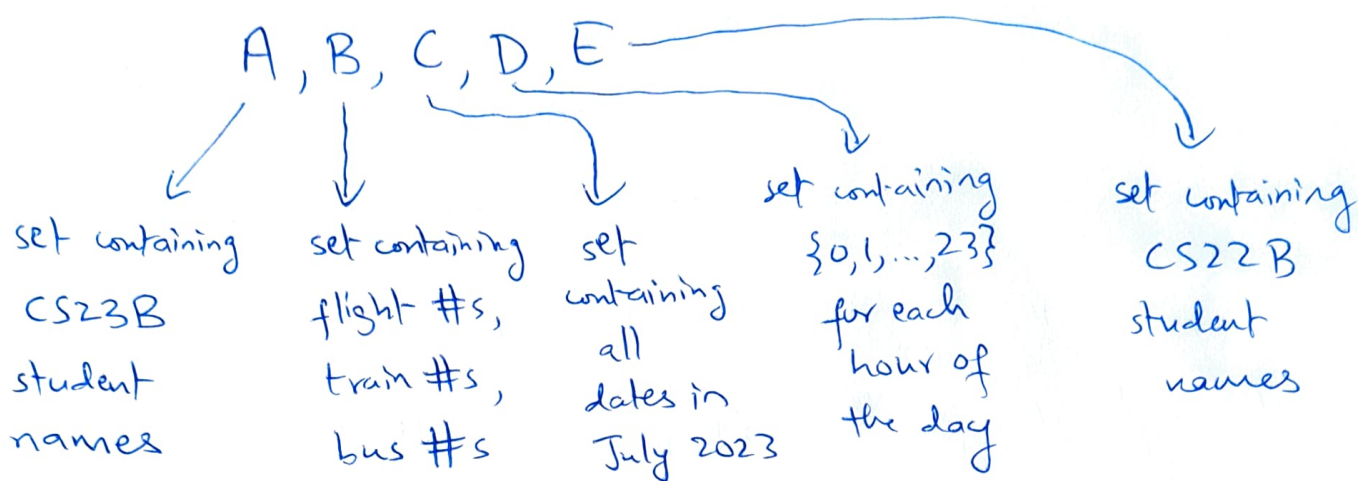 A, B, C, D, E
set containing
CS23B
student
names
set containing
flight #s,
train #s,
bus #s
set
containing
all
dates in
July 2023
set containing
{0,1,...,23}
for each
hour of
the day
set containing
CS22B
student
names